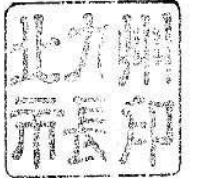 北九州
市長印